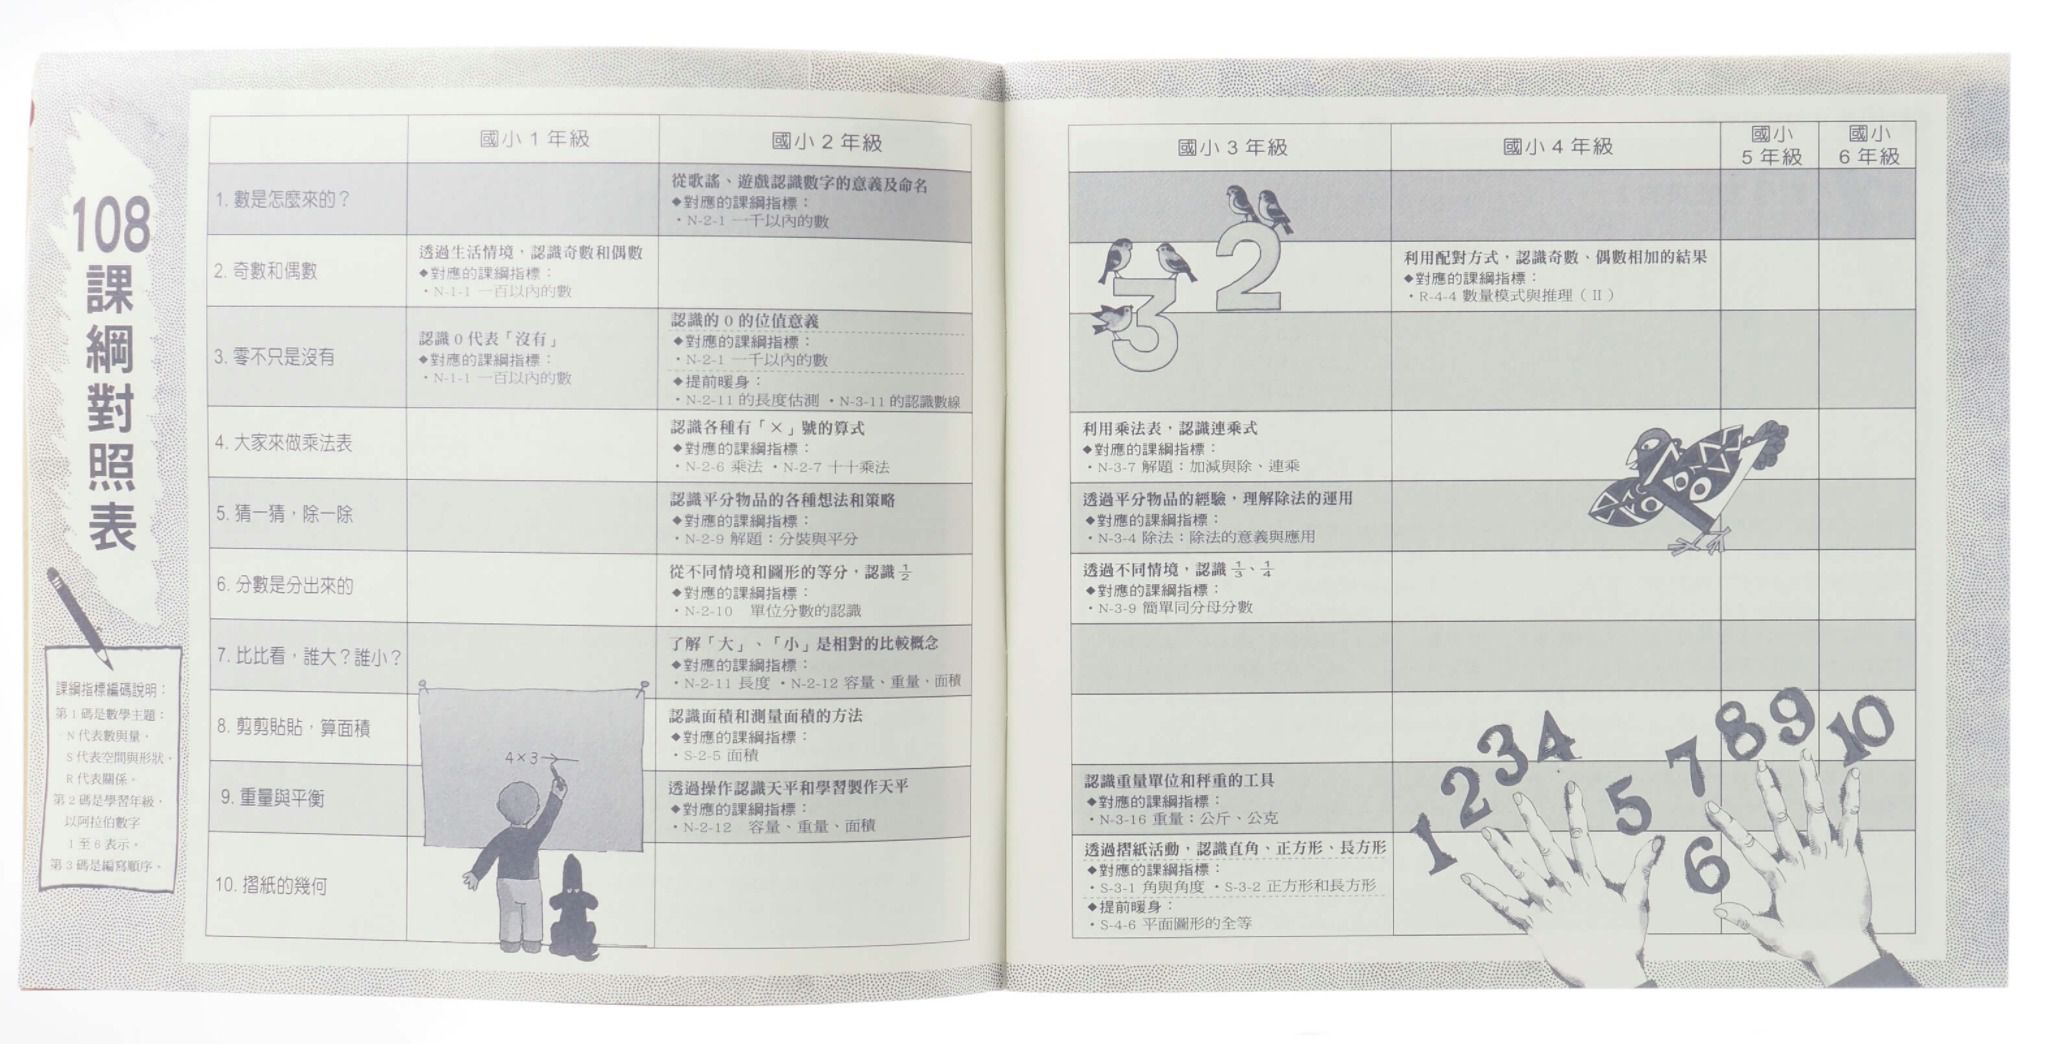 108課綱對照表
課綱指標編碼說明：
第1碼是數學主題：
N代表數與量，
S代表空間與形狀，
R代表關係。
第2碼是學習年級，
以阿拉伯數字
1至6表示。
第3碼是編寫順序。
國小1年級
國小2年級
國小3年級
國小4年級
國小
5年級
國小
6年級
1. 數是怎麼來的？
從歌謠、遊戲認識數字的意義及命名
◆對應的課綱指標：
・N-2-1 一千以內的數
2. 奇數和偶數
透過生活情境，認識奇數和偶數
◆對應的課綱指標：
・N-1-1 一百以內的數
利用配對方式，認識奇數、偶數相加的結果
◆對應的課綱指標：
・R-4-4 數量模式與推理（II）
3. 零不只是沒有
認識0代表「沒有」
◆對應的課綱指標：
・N-1-1 一百以內的數
認識的0的位值意義
◆對應的課綱指標：
・N-2-1 一千以內的數
◆提前暖身：
・N-2-11 的長度估測 ・N-3-11 的認識數線
4. 大家來做乘法表
認識各種有「×」號的算式
◆對應的課綱指標：
・N-2-6 乘法 ・N-2-7 十十乘法
利用乘法表，認識連乘式
◆對應的課綱指標：
・N-3-7 解題：加減與除、連乘
5. 猜一猜，除一除
認識平分物品的各種想法和策略
◆對應的課綱指標：
・N-2-9 解題：分裝與平分
透過平分物品的經驗，理解除法的運用
◆對應的課綱指標：
・N-3-4 除法：除法的意義與應用
6. 分數是分出來的
從不同情境和圖形的等分，認識1/2
◆對應的課綱指標：
・N-2-10 單位分數的認識
透過不同情境，認識1/3、1/4
◆對應的課綱指標：
・N-3-9 簡單同分母分數
7. 比比看，誰大？誰小？
了解「大」、「小」是相對的比較概念
◆對應的課綱指標：
・N-2-11 長度 ・N-2-12 容量、重量，面積
8. 剪剪貼貼，算面積
認識面積和測量面積的方法
◆對應的課綱指標：
・S-2-5 面積
9. 重量與平衡
透過操作認識天平和學習製作天平
◆對應的課綱指標：
・N-2-12 容量、重量、面積
認識重量單位和秤重的工具
◆對應的課綱指標：
・N-3-16 重量：公斤、公克
10. 摺紙的幾何
透過摺紙活動，認識直角、正方形、長方形
◆對應的課綱指標：
・S-3-1 角與角度 ・S-3-2 正方形和長方形
◆提前暖身：
・S-4-6 平面圖形的全等
4×3
2
3
1 2 3 4 5
6 7 8 9 10